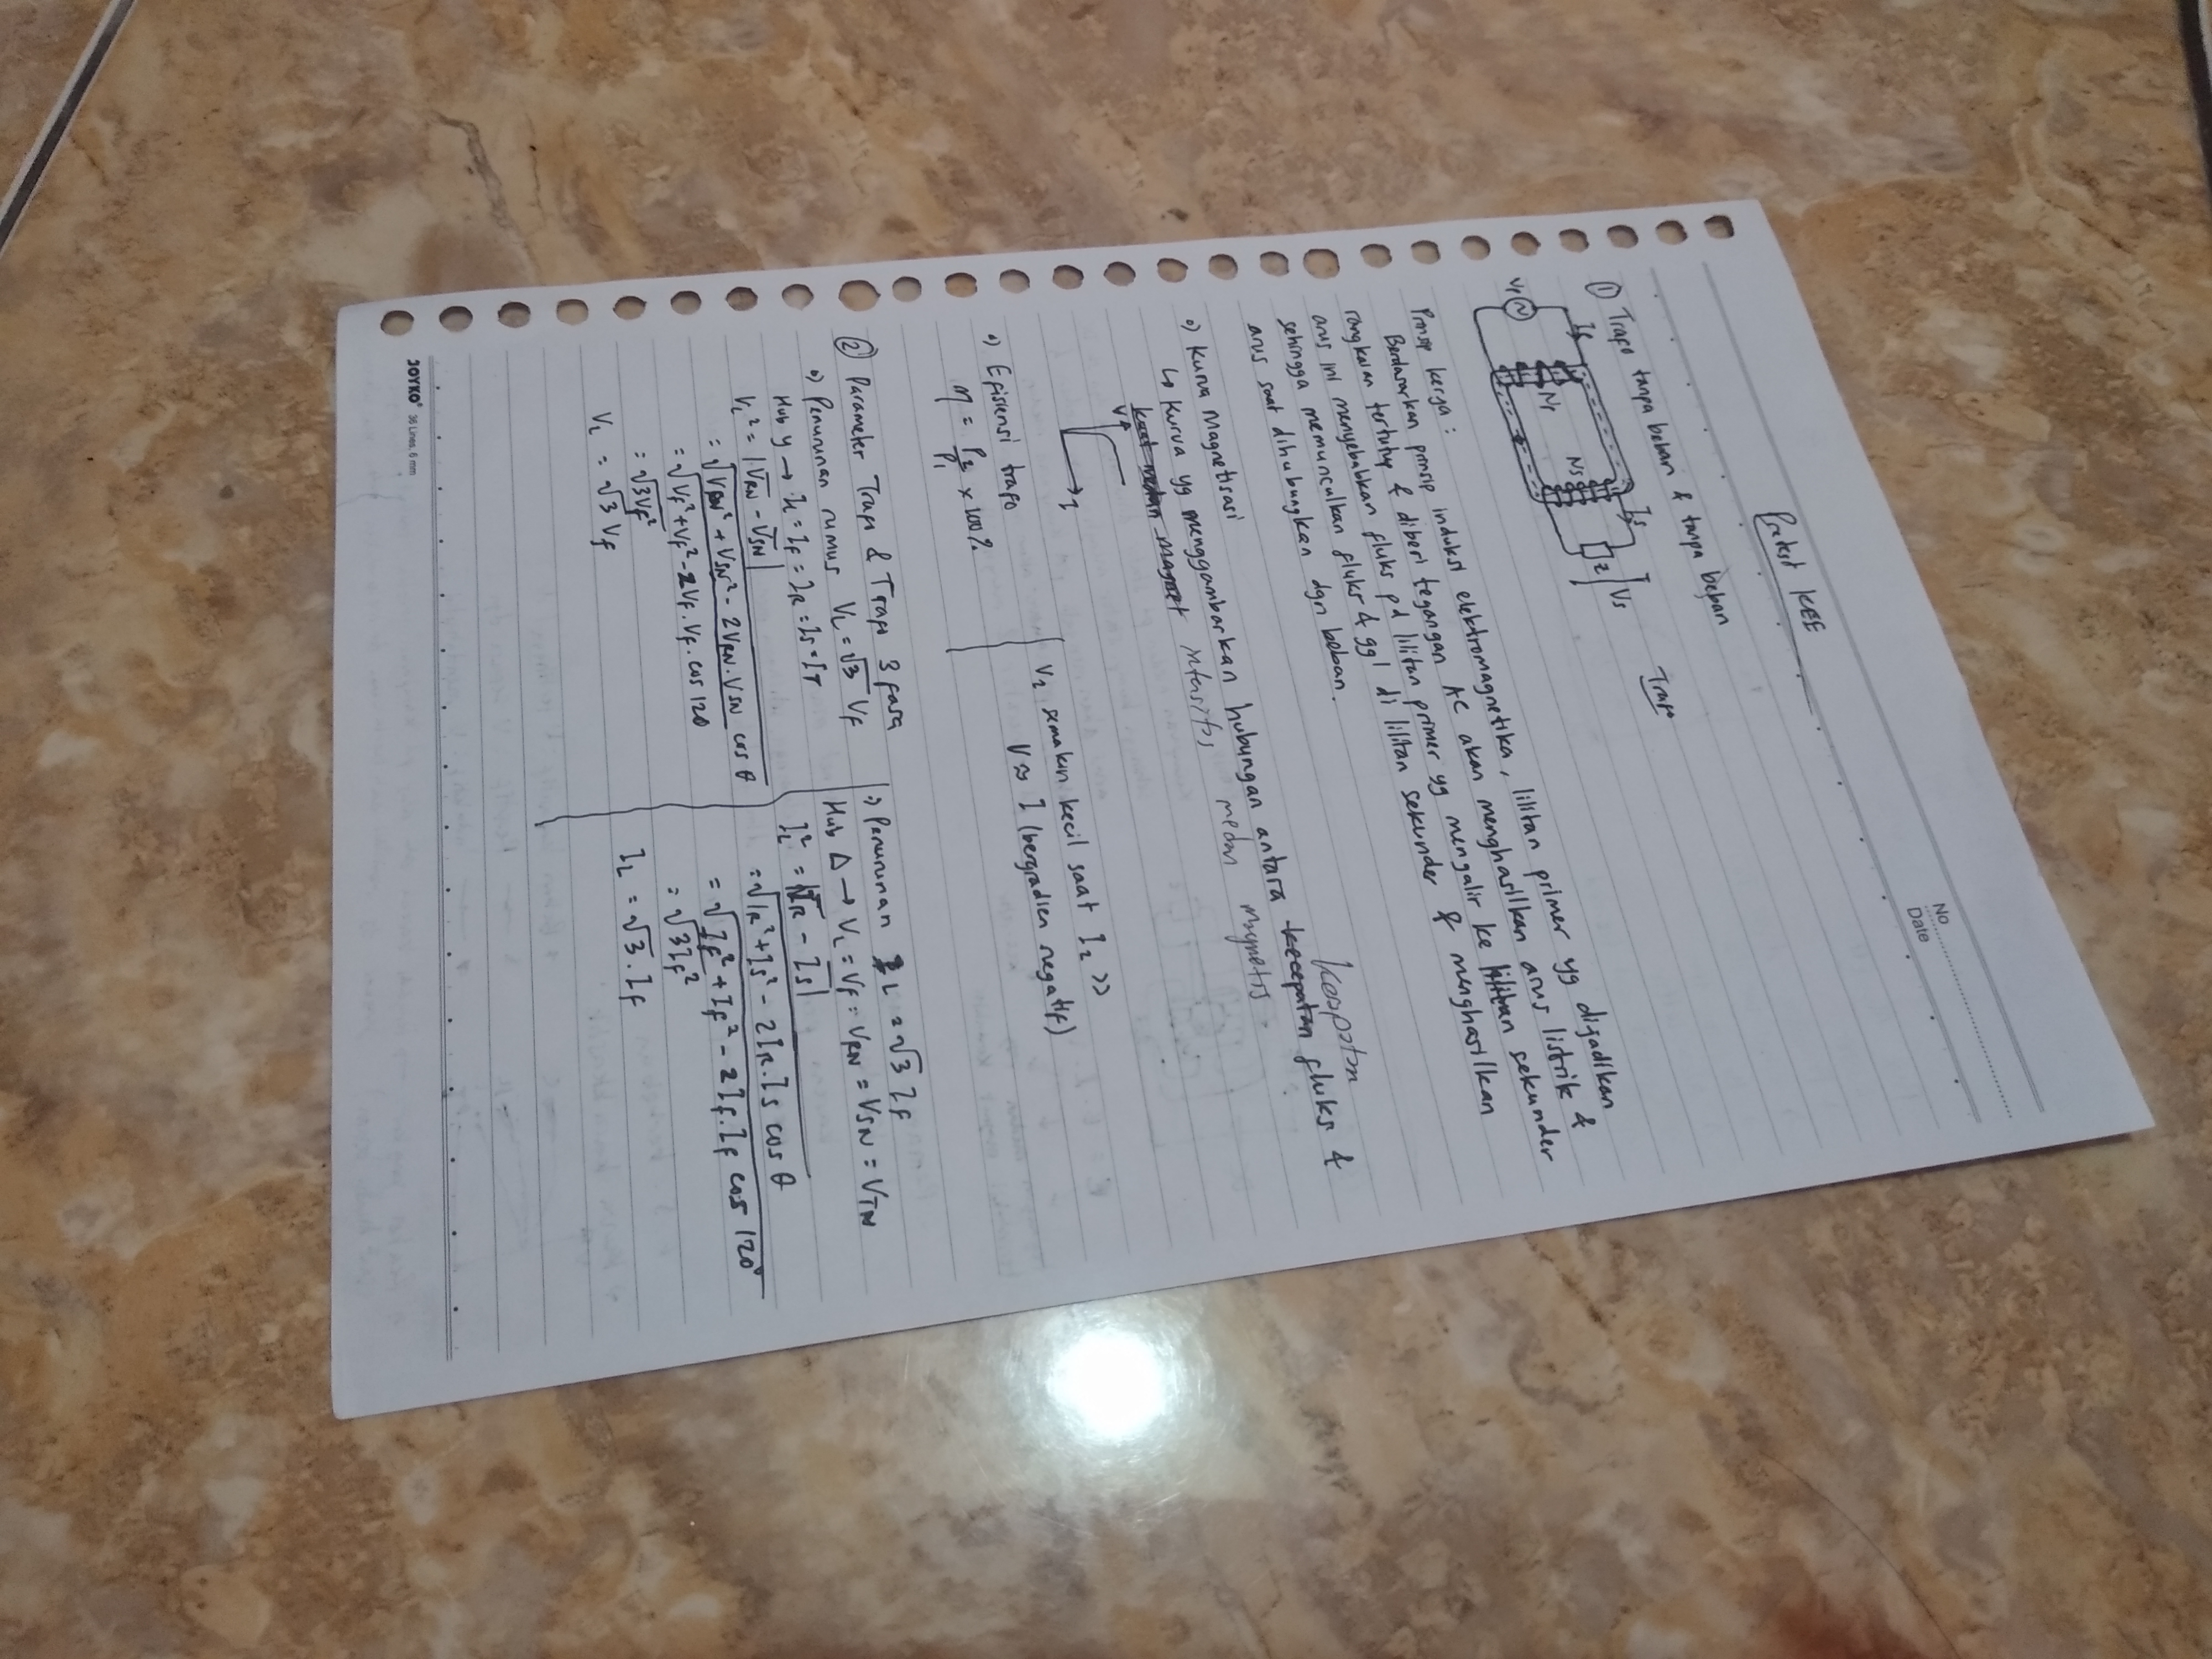 No
Date
Pretest KEE
① Trafo tanpa beban & tanpa beban
Trafo
Vp
Ip
Np
Ns
Is
Z
Vs
Prinsip kerja :
Berdasarkan prinsip induksi elektromagnetika, lilitan primer yg dijadikan
rangkaian tertutup & diberi tegangan AC akan menghasilkan arus listrik &
arus ini menyebabkan fluks pd lilitan primer yg mengalir ke lilitan sekunder
sehingga memunculkan fluks & ggl di lilitan sekunder & menghasilkan
arus saat dihubungkan dgn beban.
•) Kurva Magnetisasi
↳ kurva yg menggambarkan hubungan antara kecepatan kerapatan fluks &
kuat medan magnet intensitas medan magnetis
V
I
V₂ semakin kecil saat I₂ >>
V ≈ I (bergradien negatif)
•) Efisiensi trafo
η = P₂/P₁ × 100%
② Parameter Trafo & Trafo 3 fasa
•) Penurunan rumus VL = √3 Vf
Hub Y → IL = If = IR = IS = IT
VL² = |VRN - VSN|
= √VRN² + VSN² - 2VRN . VSN cos θ
= √Vf² + Vf² - 2Vf . Vf . cos 120
= √3Vf²
VL = √3 Vf
•) Penurunan IL = √3 If
Hub Δ → VL = Vf = VRN = VSN = VTN
IL² = |IR - IS|
= √IR² + IS² - 2IR . IS cos θ
= √If² + If² - 2If . If cos 120°
= √3If²
IL = √3 . If
JOYKO® 36 Lines, 6 mm